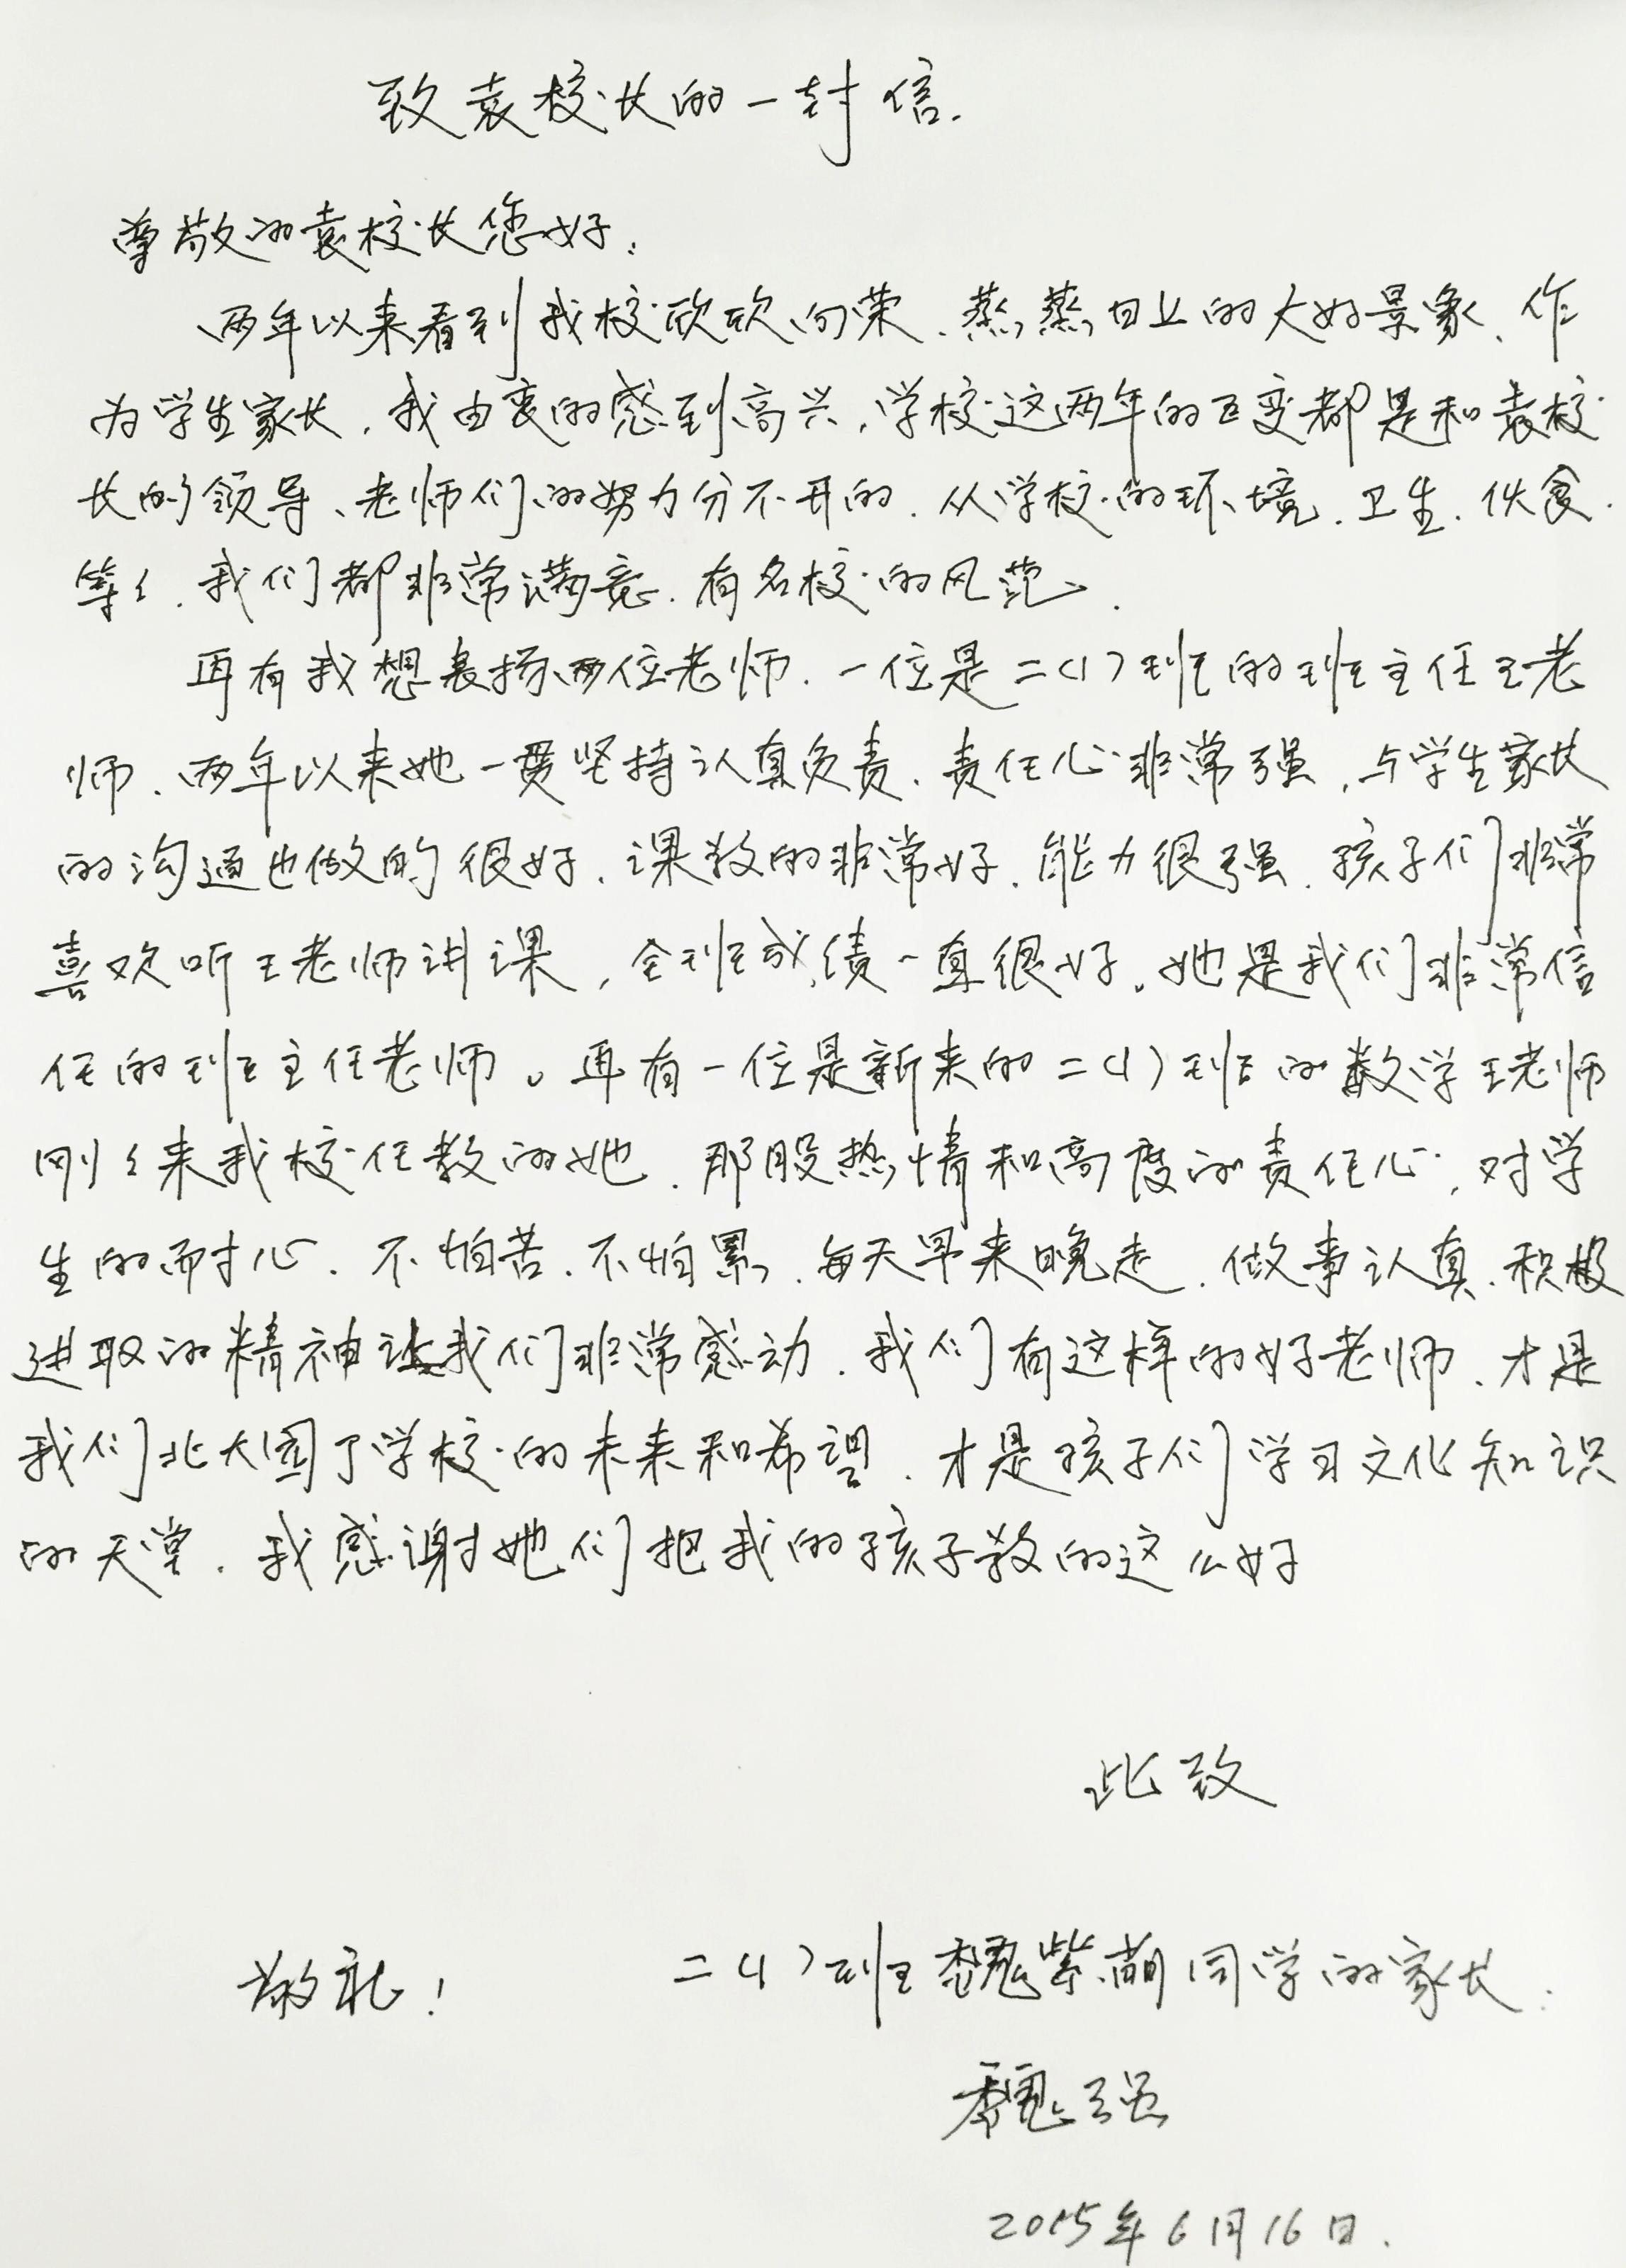 致袁校长的一封信.
尊敬的袁校长您好:
两年以来看到我校欣欣向荣、蒸蒸日上的大好景象、作
为学生家长,我由衷的感到高兴,学校这两年的巨变都是和袁校
长的领导、老师们的努力分不开的.从学校的环境.卫生.伙食.
等々.我们都非常满意.有名校的风范.
再有我想表扬两位老师.一位是二(1)班的班主任王老
师、两年以来她一贯坚持认真负责、责任心非常强,与学生家长
的沟通也做的很好、课教的非常好.能力很强.孩子们非常
喜欢听王老师讲课,全班成绩一直很好。她是我们非常信
任的班主任老师。再有一位是新来的二(1)班的数学王老师
刚々来我校任教的她.那股热情和高度的责任心,对学
生的耐心.不怕苦.不怕累.每天早来晚走.做事认真.积极
进取的精神让我们非常感动.我们有这样的好老师、才是
我们北大园丁学校的未来和希望.才是孩子们学习文化知识
的天堂.我感谢她们把我的孩子教的这么好
此致
敬礼! 二(1)班魏紫萌同学的家长.
魏强
2015年6月16日.